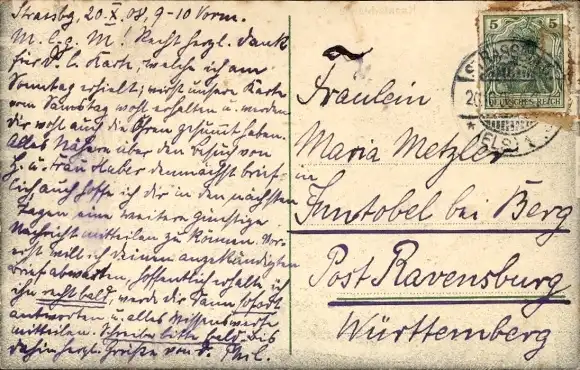 Strassbg, 20. X. 08, 9-10 Vorm.
M. lg. M! Recht herzl. Dank
für d. l. Karte, welche ich am
Sonntag erhielt; wirst unsere Karte
vom Samstag wohl erhalten u. werden
dir wohl auch die Ohren gesummt haben.
Alles Nähere über den Besuch von
H. u. Frau Huber demnächst brief-
lich auch hoffe ich dir in den nächsten
Tagen eine weitere günstige
Nachricht mitteilen zu können. Vor-
erst will ich deinen angekündigten
Brief abwarten, hoffentlich erhalte ich
ihn recht bald, werde dir dann sofort
antworten u. alles Wissenswerte
mitteilen. Schreibe bitte bald. Bis
dahin herzl. Grüße von d. Phil.
5 5
DEUTSCHES REICH
STRASSBURG
(ELS)
Fräulein
Maria Metzler
in
Inntobel bei Berg
Post Ravensburg
Württemberg